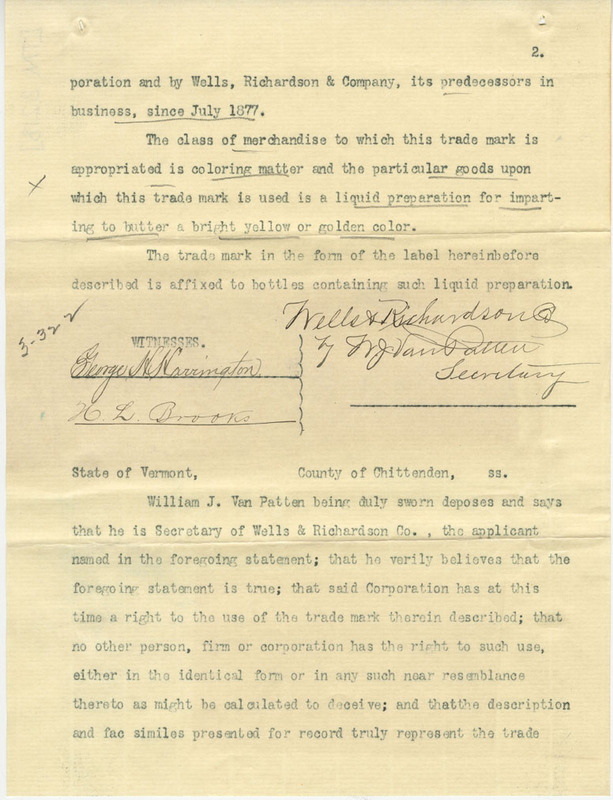 2.
poration and by Wells, Richardson & Company, its predecessors in
business, since July 1877.
The class of merchandise to which this trade mark is
appropriated is coloring matter and the particular goods upon
which this trade mark is used is a liquid preparation for impart-
ing to butter a bright yellow or golden color.
The trade mark in the form of the label hereinbefore
described is affixed to bottles containing such liquid preparation.
3-322
Wells & Richardson Co
WITNESSES.
by W J Van Patten
George H Harrington
Secretary
H. L. Brooks
State of Vermont, County of Chittenden, ss.
William J. Van Patten being duly sworn deposes and says
that he is Secretary of Wells & Richardson Co. , the applicant
named in the foregoing statement; that he verily believes that the
foregoing statement is true; that said Corporation has at this
time a right to the use of the trade mark therein described; that
no other person, firm or corporation has the right to such use,
either in the identical form or in any such near resemblance
thereto as might be calculated to deceive; and thatthe description
and fac similes presented for record truly represent the trade